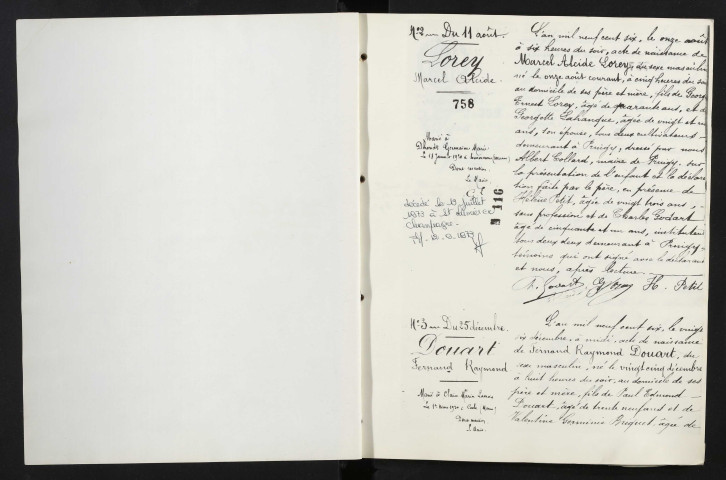 N° 2 Du 11 août.
Lorey
Marcel Alcide.
758
Marié à
Germaine Marie
Le 18 janvier 1930 à
Le Maire
décédé le 19 juillet
1973 à St
Champagne.
116
L'an mil neuf cent six, le onze août
à six heures du soir, acte de naissance de
Marcel Alcide Lorey, du sexe masculin
né le onze août courant, à cinq heures du soir
au domicile de ses père et mère, fils de Georges
Ernest Lorey, âgé de quarante ans, et de
Georgette Lahanque, âgée de vingt et un
ans, son épouse, tous deux cultivateurs
demeurant à Pringy, dressé par nous
Albert Collard, maire de Pringy, sur
la présentation de l'enfant et la déclara
tion faite par le père, en présence de
Hélène Petit, âgée de vingt trois ans,
sans profession et de Charles Godart
âgé de cinquante et un ans, instituteur
tous deux deux demeurant à Pringy
témoins qui ont signé avec le déclarant
et nous, après lecture.
H. Petit
N° 3 Du 25 décembre.
Douart
Fernand Raymond
Marié à
Le Maire.
L'an mil neuf cent six, le vingt
six décembre, à midi, acte de naissance
de Fernand Raymond Douart, du
sexe masculin, né le vingt cinq décembre
à huit heures du soir, au domicile de ses
père et mère, fils de Paul Edmond
Douart, âgé de trente neuf ans et de
Valentine Germaine Huguet âgée de